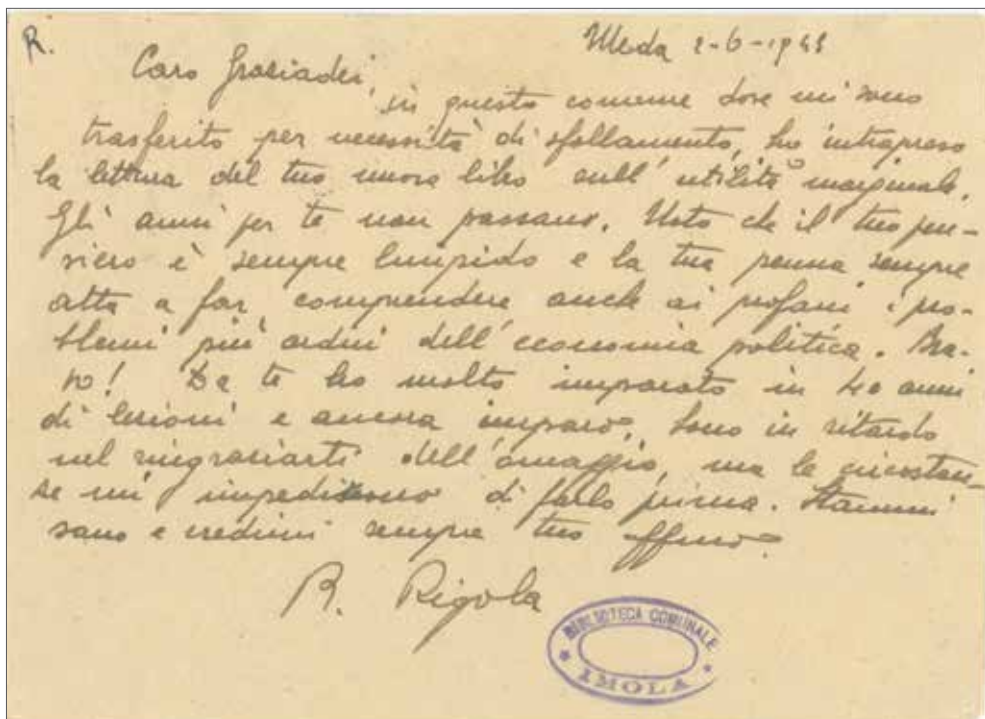 R.
Meda 2-6-1943
Caro Graziadei,
in questo comune dove mi sono
trasferito per necessità di sfollamento, ho intrapreso
la lettura del tuo nuovo libro sull'utilità marginale.
Gli anni per te non passano. Noto che il tuo pen-
siero è sempre limpido e la tua penna sempre
atta a far comprendere anche ai profani i pro-
blemi più ardui dell'economia politica. Bra-
vo! Da te ho molto imparato in 40 anni
di lezioni e ancora imparo. Sono in ritardo
nel ringraziarti dell'omaggio, ma le circostan-
ze mi impedirono di farlo prima. Stammi
sano e credimi sempre tuo affmo
R. Rigola
BIBLIOTECA COMUNALE
IMOLA